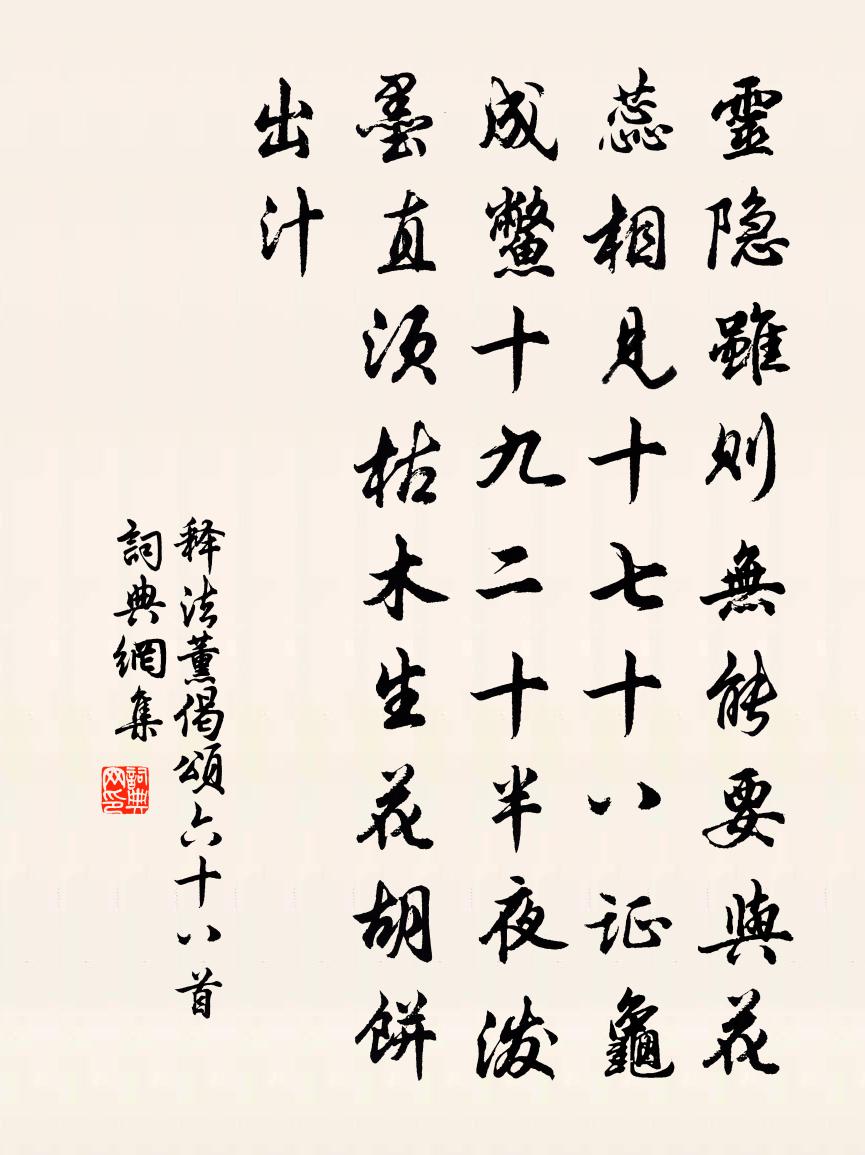 靈隐雖则無能要與花
蕊相見十七十八证龜
成鱉十九二十半夜泼
墨直须枯木生花胡餅
出汁
释法薰偈頌六十八首
詞典網集
詞典网印